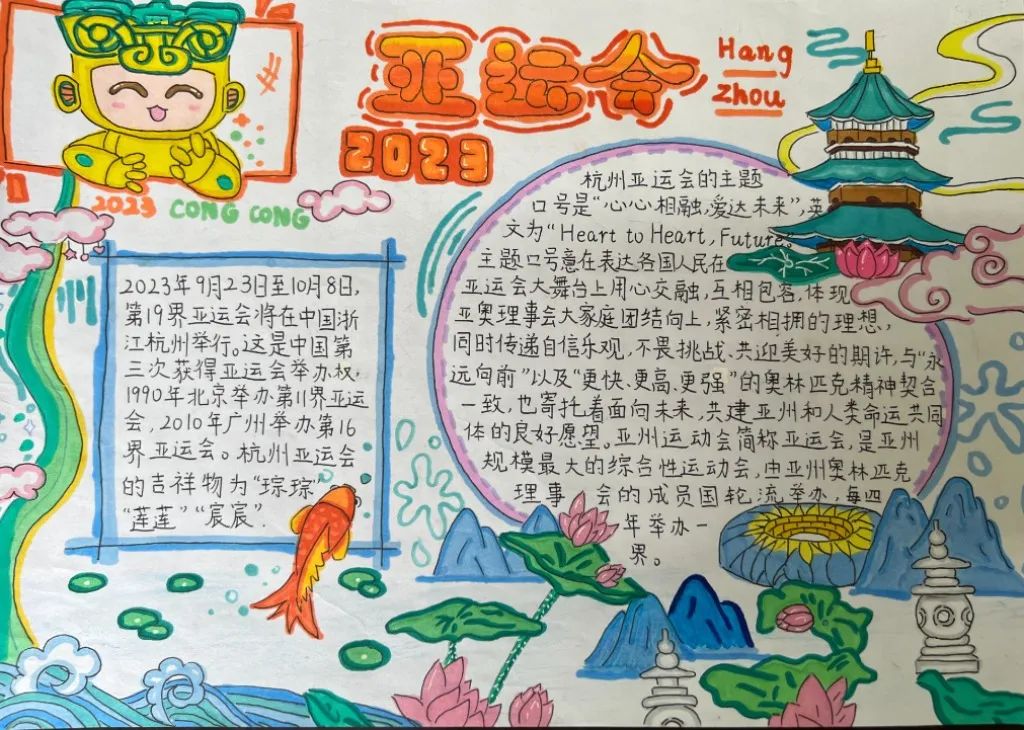 亚运会
Hang
Zhou
2023
2023 CONG CONG
2023年9月23日至10月8日,
第19界亚运会将在中国浙
江杭州举行。这是中国第
三次获得亚运会举办权.
1990年北京举办第11界亚运
会，2010年广州举办第16
界亚运会。杭州亚运会
的吉祥物为“琮琮”
“莲莲”“宸宸”.
杭州亚运会的主题
口号是“心心相融,爱达未来”,英
文为“Heart to Heart, Future”。
主题口号意在表达各国人民在
亚运会大舞台上用心交融,互相包容,体现
亚奥理事会大家庭团结向上,紧密相拥的理想,
同时传递自信乐观,不畏挑战、共迎美好的期许,与“永
远向前”以及“更快、更高、更强”的奥林匹克精神契合
一致,也寄托着面向未来,共建亚州和人类命运共同
体的良好愿望。亚州运动会简称亚运会,是亚州
规模最大的综合性运动会,由亚州奥林匹克
理事会的成员国轮流举办,每四
年举办一
界。